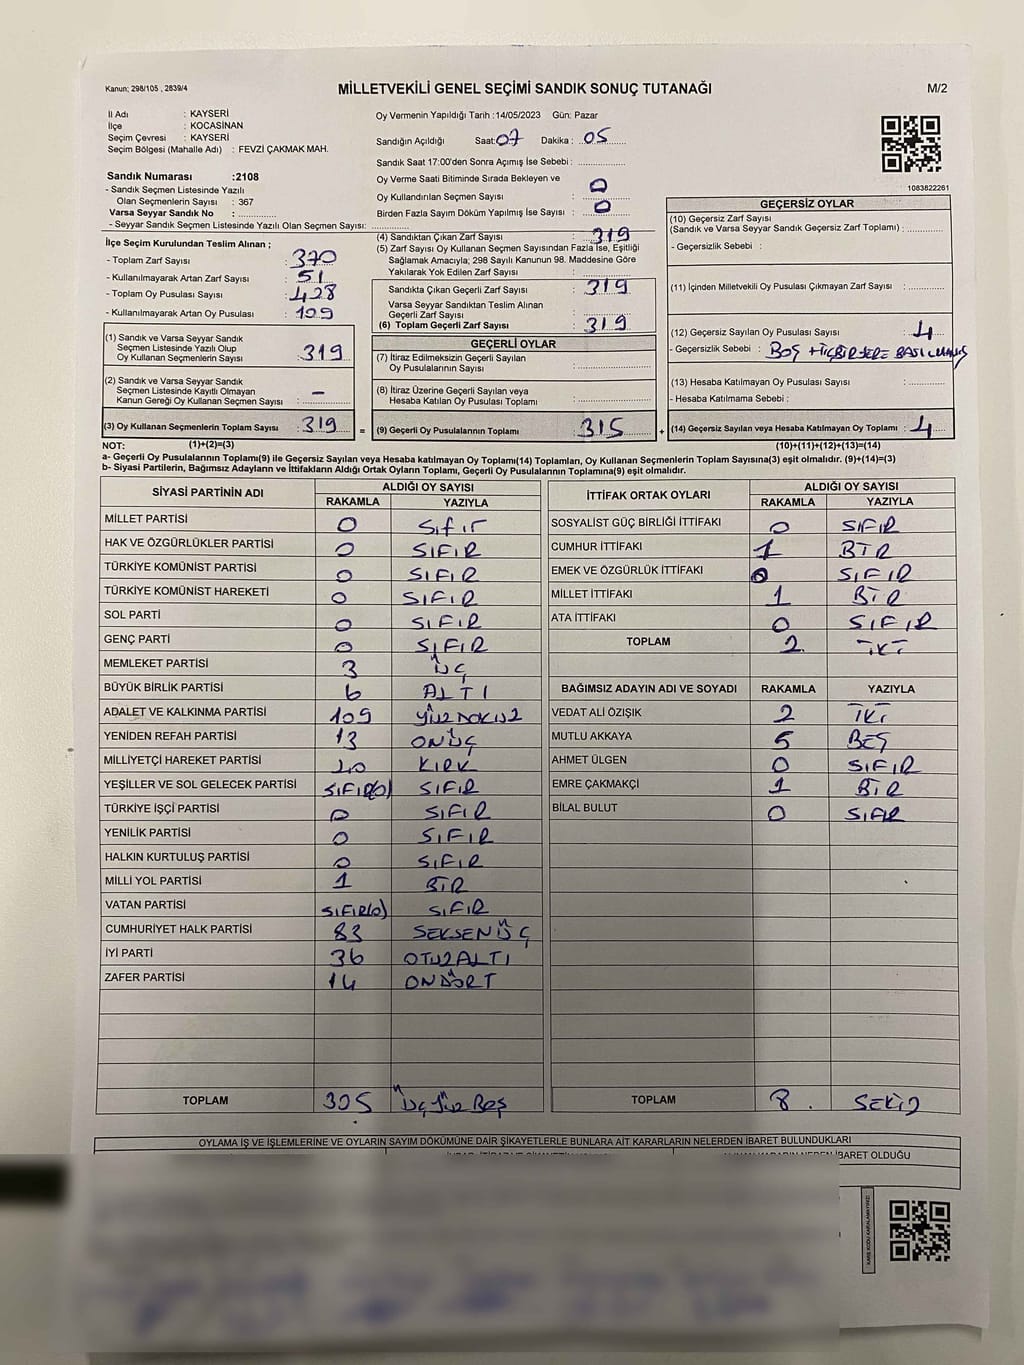 Kanun; 298/105 , 2839/4
MİLLETVEKİLİ GENEL SEÇİMİ SANDIK SONUÇ TUTANAĞI
M/2
İl Adı : KAYSERİ
İlçe : KOCASİNAN
Seçim Çevresi : KAYSERİ
Seçim Bölgesi (Mahalle Adı) : FEVZİ ÇAKMAK MAH.
Sandık Numarası :2108
- Sandık Seçmen Listesinde Yazılı
Olan Seçmenlerin Sayısı : 367
Varsa Seyyar Sandık No :
- Seyyar Sandık Seçmen Listesinde Yazılı Olan Seçmen Sayısı:
Oy Vermenin Yapıldığı Tarih :14/05/2023 Gün: Pazar
Sandığın Açıldığı Saat:07 Dakika: 05
Sandık Saat 17:00'den Sonra Açımış İse Sebebi :
Oy Verme Saati Bitiminde Sırada Bekleyen ve
Oy Kullandırılan Seçmen Sayısı : 0
Birden Fazla Sayım Döküm Yapılmış İse Sayısı : 0
1083822261
İlçe Seçim Kurulundan Teslim Alınan ;
- Toplam Zarf Sayısı : 370
- Kullanılmayarak Artan Zarf Sayısı : 51
- Toplam Oy Pusulası Sayısı : 428
- Kullanılmayarak Artan Oy Pusulası : 109
(1) Sandık ve Varsa Seyyar Sandık
Seçmen Listesinde Yazılı Olup
Oy Kullanan Seçmenlerin Sayısı : 319
(2) Sandık ve Varsa Seyyar Sandık
Seçmen Listesinde Kayıtlı Olmayan
Kanun Gereği Oy Kullanan Seçmen Sayısı : –
(3) Oy Kullanan Seçmenlerin Toplam Sayısı : 319
(4) Sandıktan Çıkan Zarf Sayısı : 319
(5) Zarf Sayısı Oy Kullanan Seçmen Sayısından Fazla İse, Eşitliği
Sağlamak Amacıyla; 298 Sayılı Kanunun 98. Maddesine Göre
Yakılarak Yok Edilen Zarf Sayısı :
Sandıkta Çıkan Geçerli Zarf Sayısı : 319
Varsa Seyyar Sandıktan Teslim Alınan
Geçerli Zarf Sayısı :
(6) Toplam Geçerli Zarf Sayısı : 319
GEÇERLİ OYLAR
(7) İtiraz Edilmeksizin Geçerli Sayılan
Oy Pusulasının Sayısı :
(8) İtiraz Üzerine Geçerli Sayılan veya
Hesaba Katılan Oy Pusulası Toplamı :
= (9) Geçerli Oy Pusulalarının Toplamı : 315
GEÇERSİZ OYLAR
(10) Geçersiz Zarf Sayısı
(Sandık ve Varsa Seyyar Sandık Geçersiz Zarf Toplamı) :
- Geçersizlik Sebebi :
(11) İçinden Milletvekili Oy Pusulası Çıkmayan Zarf Sayısı :
(12) Geçersiz Sayılan Oy Pusulası Sayısı : 4
- Geçersizlik Sebebi : BOŞ + HİÇBİRYERE BASILMAMIŞ
(13) Hesaba Katılmayan Oy Pusulası Sayısı :
- Hesaba Katılmama Sebebi :
+ (14) Geçersiz Sayılan veya Hesaba Katılmayan Oy Toplamı : 4
NOT: (1)+(2)=(3) (10)+(11)+(12)+(13)=(14)
a- Geçerli Oy Pusulalarının Toplamı(9) ile Geçersiz Sayılan veya Hesaba katılmayan Oy Toplamı(14) Toplamları, Oy Kullanan Seçmenlerin Toplam Sayısına(3) eşit olmalıdır. (9)+(14)=(3)
b- Siyasi Partilerin, Bağımsız Adayların ve İttifakların Aldığı Ortak Oyların Toplamı, Geçerli Oy Pusulalarının Toplamına(9) eşit olmalıdır.
SİYASİ PARTİNİN ADI ALDIĞI OY SAYISI
RAKAMLA YAZIYLA
MİLLET PARTİSİ 0 Sıfır
HAK VE ÖZGÜRLÜKLER PARTİSİ 0 SIFIR
TÜRKİYE KOMÜNİST PARTİSİ 0 SIFIR
TÜRKİYE KOMÜNİST HAREKETİ 0 SIFIR
SOL PARTİ 0 SIFIR
GENÇ PARTİ 0 SIFIR
MEMLEKET PARTİSİ 3 ÜÇ
BÜYÜK BİRLİK PARTİSİ 6 ALTI
ADALET VE KALKINMA PARTİSİ 109 YÜZDOKUZ
YENİDEN REFAH PARTİSİ 13 ONÜÇ
MİLLİYETÇİ HAREKET PARTİSİ 40 KIRK
YEŞİLLER VE SOL GELECEK PARTİSİ SIFIR(0) SIFIR
TÜRKİYE İŞÇİ PARTİSİ 0 SIFIR
YENİLİK PARTİSİ 0 SIFIR
HALKIN KURTULUŞ PARTİSİ 0 SIFIR
MİLLİ YOL PARTİSİ 1 BİR
VATAN PARTİSİ SIFIR(0) SIFIR
CUMHURİYET HALK PARTİSİ 83 SEKSENÜÇ
İYİ PARTİ 36 OTUZALTI
ZAFER PARTİSİ 14 ONDÖRT
TOPLAM 305 ÜÇ YÜZ BEŞ
İTTİFAK ORTAK OYLARI ALDIĞI OY SAYISI
RAKAMLA YAZIYLA
SOSYALİST GÜÇ BİRLİĞİ İTTİFAKI 0 SIFIR
CUMHUR İTTİFAKI 1 BİR
EMEK VE ÖZGÜRLÜK İTTİFAKI 0 SIFIR
MİLLET İTTİFAKI 1 BİR
ATA İTTİFAKI 0 SIFIR
TOPLAM 2 İKİ
BAĞIMSIZ ADAYIN ADI VE SOYADI RAKAMLA YAZIYLA
VEDAT ALİ ÖZIŞIK 2 İKİ
MUTLU AKKAYA 5 BEŞ
AHMET ÜLGEN 0 SIFIR
EMRE ÇAKMAKÇİ 1 BİR
BİLAL BULUT 0 SIFIR
TOPLAM 8 SEKİZ
OYLAMA İŞ VE İŞLEMLERİNE VE OYLARIN SAYIM DÖKÜMÜNE DAİR ŞİKAYETLERLE BUNLARA AİT KARARLARIN NELERDEN İBARET BULUNDUKLARI
İBARET OLDUĞU